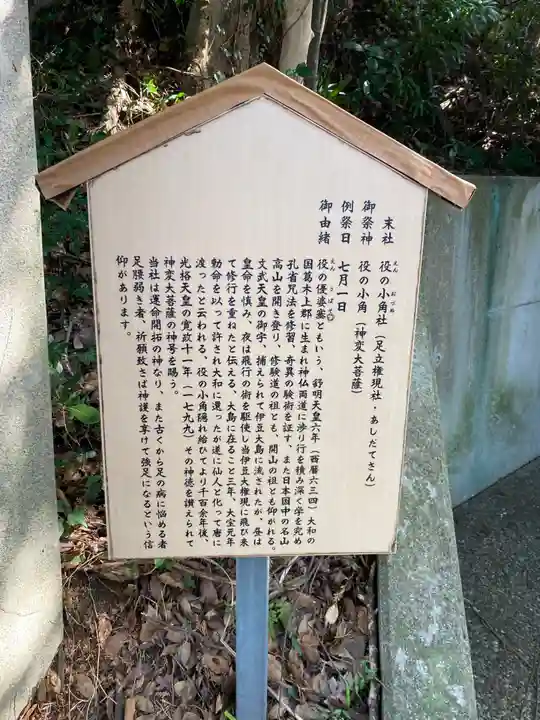 末社 役の小角社（足立権現社・あしだてさん）
えん おづぬ
御祭神 役の小角（神変大菩薩）
例祭日 七月一日
御由緒 役の優婆塞ともいう、舒明天皇六年（西暦六三四）大和の
えん うばそく
国葛木上郡に生まれ神仏両道に渉り行を積み深く学を究め
孔雀咒法を修習、奇異の験術を証す、また日本国中の名山
高山を開き登り、修験道の祖とも、開山の祖とも仰がれる。
文武天皇の御宇、捕えられて伊豆大島に流されたが、昼は
皇命を慎み、夜は飛行の術を駆使し当伊豆大権現に飛び来
て修行を重ねたと伝える、大島に在ること三年、大宝元年
勅命を以って許され大和に還ったが遂に仙人と化って唐に
渡ったと云われる、役の小角隠れ給ひてより千百余年後、
光格天皇の寛政十一年（一七九九）その神徳を讃えられて
神変大菩薩の神号を賜う。
当社は運命開拓の神なり、また古くから足の病に悩める者
足腰弱き者、祈願致さば神護を享けて強足になるという信
仰があります。